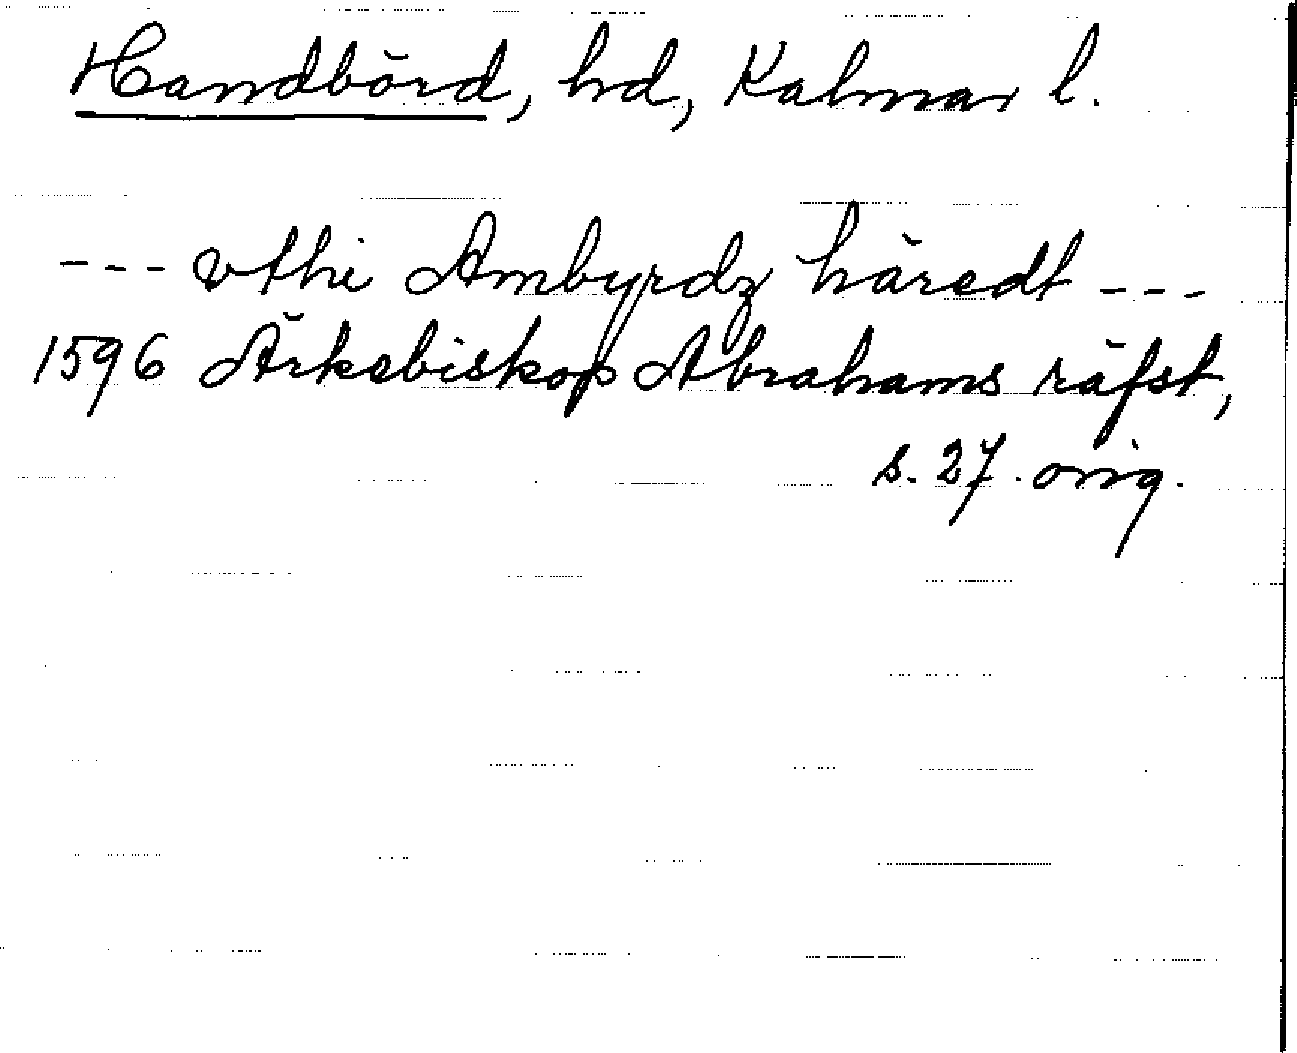 Handbörd, hd, Kalmar l.
--- vthi Ambyrdz häredt ---
1596 Ärkebiskop Abrahams räfst,
s. 27. orig.